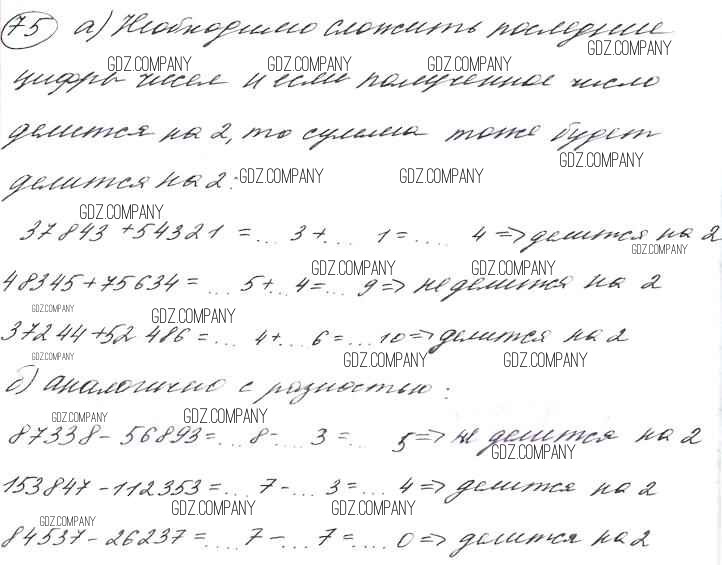 75 а) Необходимо сложить последние
GDZ.COMPANY
цифры чисел и если полученное число
GDZ.COMPANY GDZ.COMPANY GDZ.COMPANY
делится на 2, то сумма тоже будет
GDZ.COMPANY
делится на 2:
GDZ.COMPANY GDZ.COMPANY
GDZ.COMPANY
37843 + 54321 = ... 3 + ... 1 = ... 4 => делится на 2
GDZ.COMPANY
GDZ.COMPANY GDZ.COMPANY
48345 + 75634 = ... 5 + ... 4 = ... 9 => не делится на 2
GDZ.COMPANY GDZ.COMPANY
37244 + 52486 = ... 4 + ... 6 = ... 10 => делится на 2
GDZ.COMPANY GDZ.COMPANY GDZ.COMPANY
б) аналогично с разностью:
GDZ.COMPANY GDZ.COMPANY
87338 - 56893 = ... 8 - ... 3 = ... 5 => не делится на 2
GDZ.COMPANY
153847 - 112353 = ... 7 - ... 3 = ... 4 => делится на 2
GDZ.COMPANY GDZ.COMPANY GDZ.COMPANY
84537 - 26237 = ... 7 - ... 7 = ... 0 => делится на 2